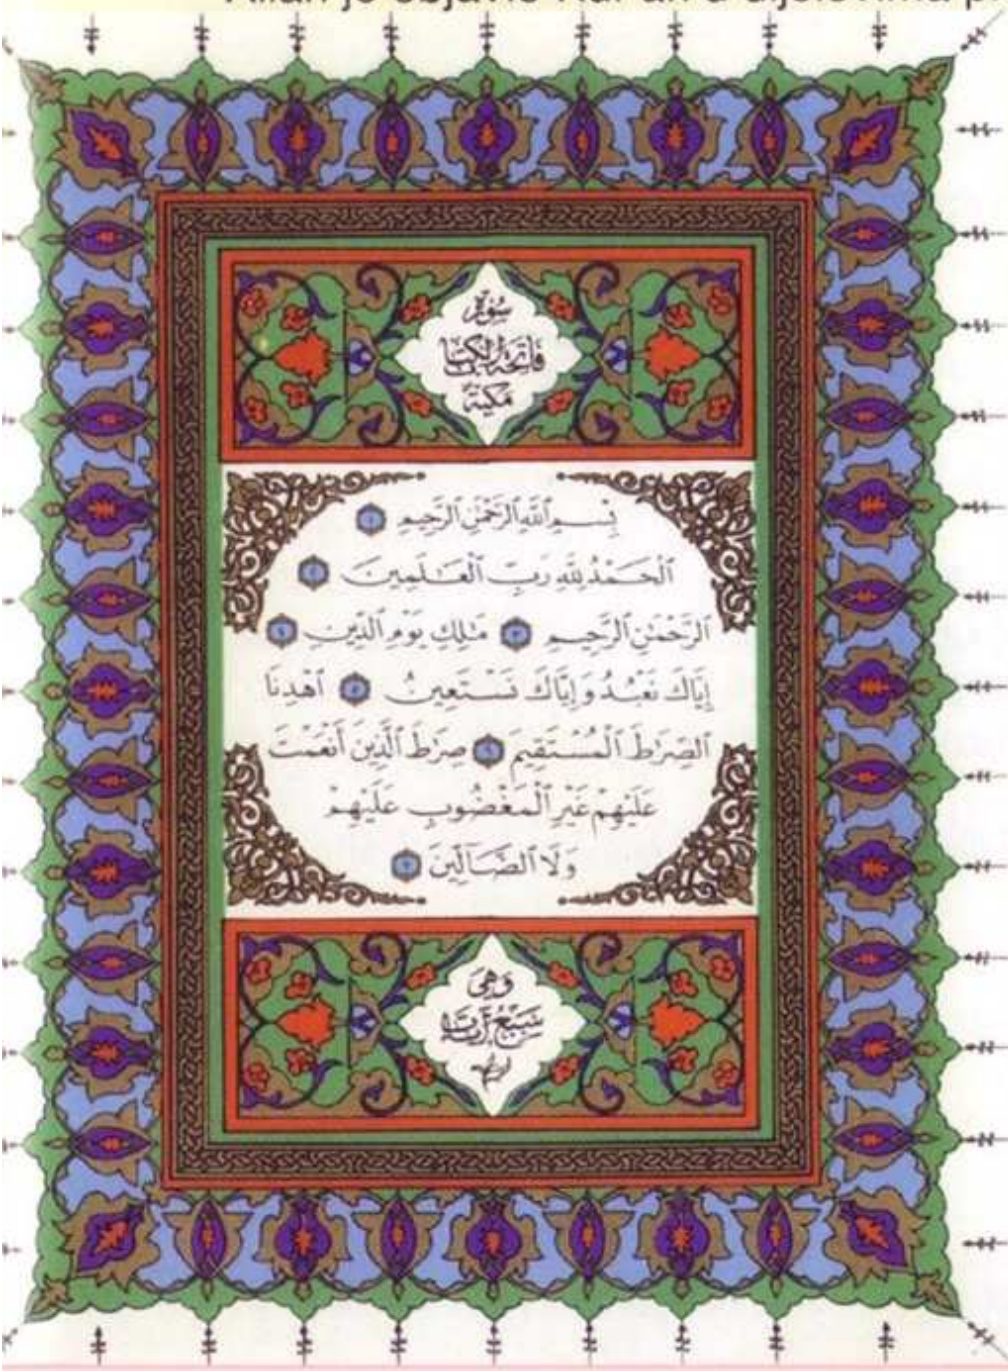 Allah je objavio Kur'an u dijelovima
سُورَةُ
فَاتِحَةِ الْكِتَابِ
مَكِّيَّة
بِسْمِ ٱللَّهِ ٱلرَّحْمَٰنِ ٱلرَّحِيمِ ١
ٱلْحَمْدُ لِلَّهِ رَبِّ ٱلْعَٰلَمِينَ ٢
ٱلرَّحْمَٰنِ ٱلرَّحِيمِ ٣ مَٰلِكِ يَوْمِ ٱلدِّينِ ٤
إِيَّاكَ نَعْبُدُ وَإِيَّاكَ نَسْتَعِينُ ٥ ٱهْدِنَا
ٱلصِّرَٰطَ ٱلْمُسْتَقِيمَ ٦ صِرَٰطَ ٱلَّذِينَ أَنْعَمْتَ
عَلَيْهِمْ غَيْرِ ٱلْمَغْضُوبِ عَلَيْهِمْ
وَلَا ٱلضَّآلِّينَ ٧
وَهِيَ
سَبْعُ آيَات